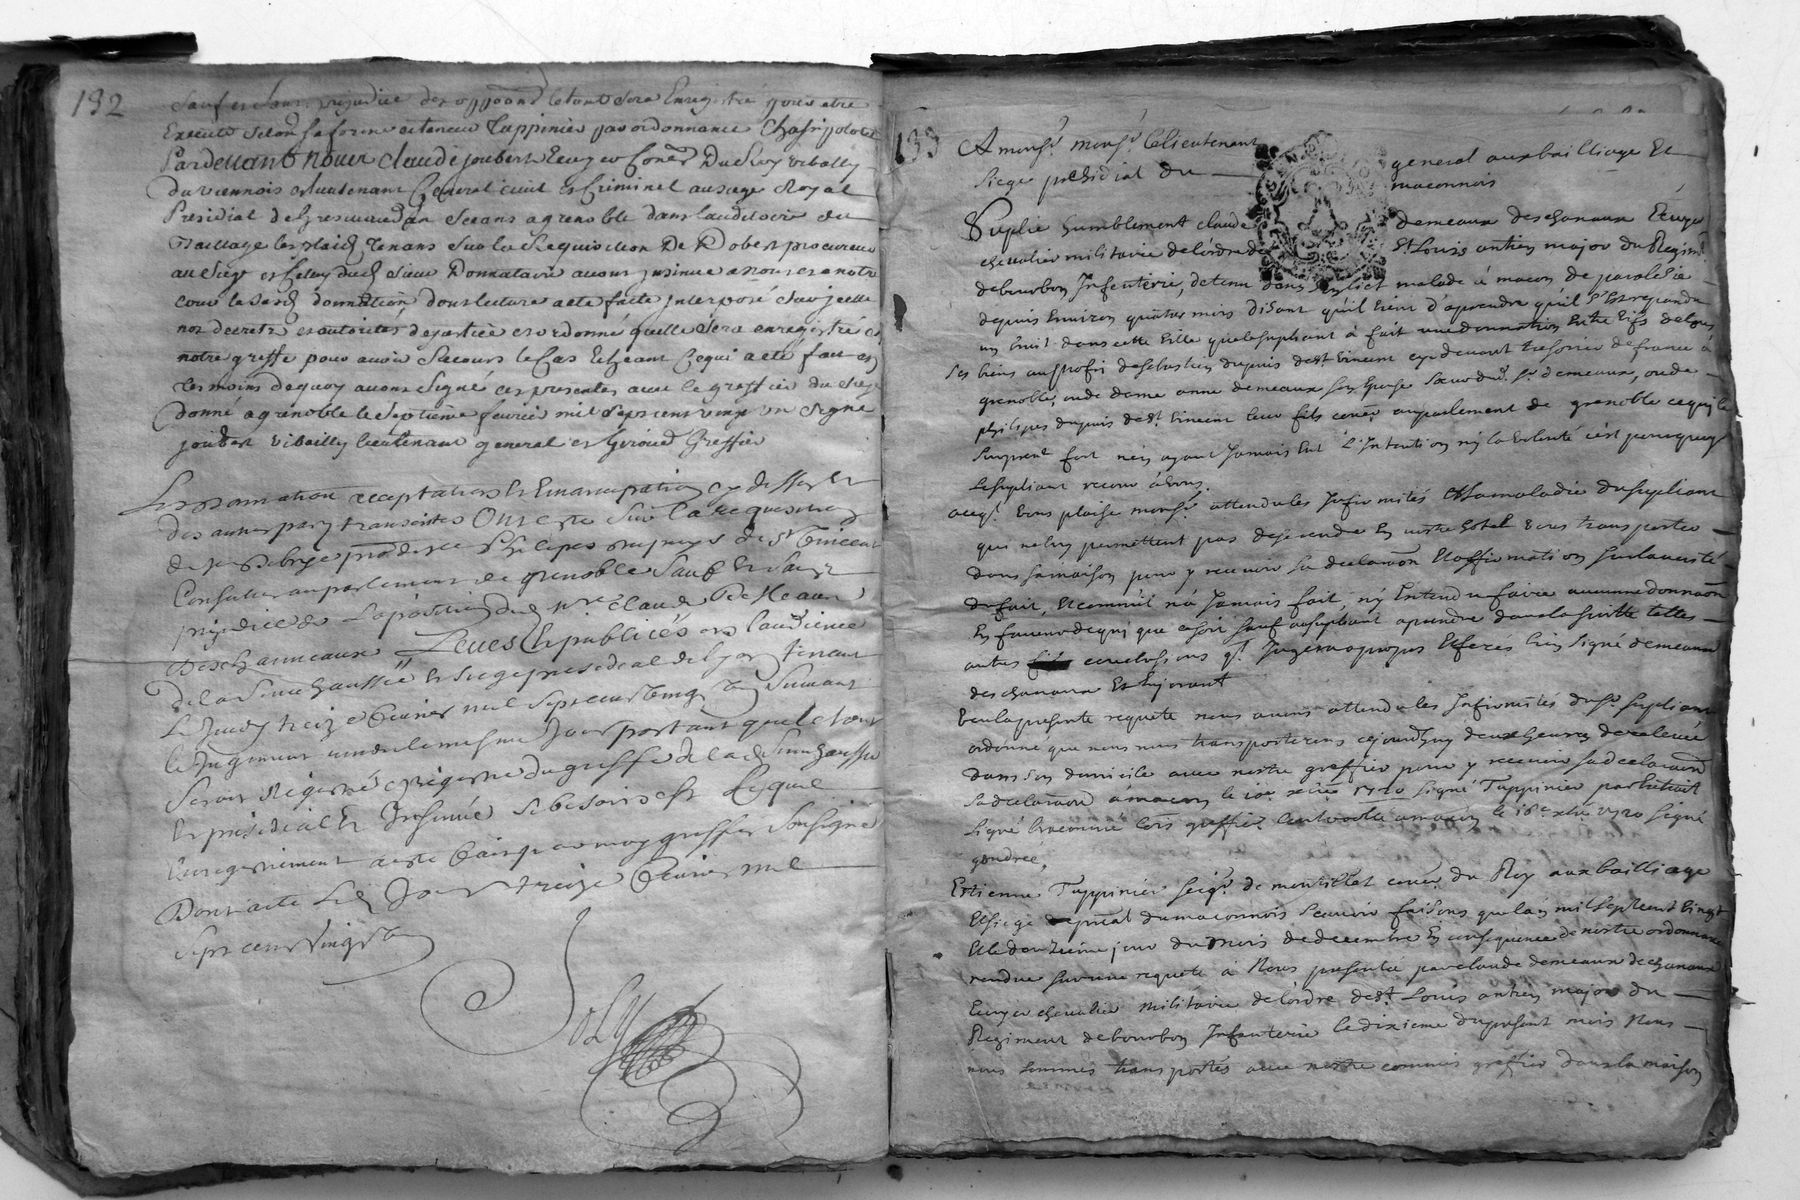 192
sauf et sans prejudice des opposans le tout sera Enregistré pour etre
Executé selon sa forme et teneur Tappinier par ordonnance
Pardevant nous claude joubert Ecuyer Coner Du Roy vibally
du viennois et lieutenant General civil et Criminel au siege Royal
Presidial de Gresivaudan seeans a grenoble dans lauditoire du
Baillage les plaids tenans sur la Requisition De Robert procureur
au siege et Celuy dud sieur Donnataire avons insinué a nous et a notre
cour la susd donnation dont lecture a eté faite interposé sur icelle
nos decrets et autorités de justice et ordonné quelle sera enregistré en
notre greffe pour avoir Recours le Cas Echeant Ce qui a eté fait en
Tesmoins de quoy avons Signé ces presentes avec le greffier du siege
donné a grenoble le septieme fevrier mil sept cent vingt un signé
joubert vibailly lieutenant general et Giroud Greffier
Les donnation acceptation Et Emancipation cy dessus Et
des autres parts transcrites Ont esté Sur la requisition
de philipes dupuys de St Vincent
Conseiller au parlement de grenoble Sauf Et sans
prejudice de Lopposition dud mre claude De Meaux
Deschanneaux Leues Et publiées en laudience
de la Senechaussée Et Siege presidial de lyon tenant
Le Jeudy treize fevrier mil sept cent vingt un Suivant
le Jugement rendu le mesme Jour portant que le tout
Seroit Registré es registres du greffe de la de Senechaussée
Et presidial Et Insinué si besoin est Lequel
Enregistrement a esté fait par moy greffier Soussigné
Dont acte Led Jour treize fevrier mil
sept cent vingt un
Joly
193
A monsr. monsr. le lieutenant general aux bailliage Et
siege presidial du maconnois
Suplie humblement claude demeaux deschanaux Ecuyer
chevalier militaire de lordre de St. Louis antien major du Regimt
de bourbon Infenterie, detenu dans son lict malade à macon de paralesie
depuis Environ quatre mois disant qu'il vient d'aprendre qu'il s'Est repandu
un bruit dans cette ville que le supliant à fait une donnation Entre vifs de tous
ses biens au profit de sebastien dupuis de St. Vincent cy devant tresorier de france à
grenoble, ou de dame anne demeaux son Epouse soeur dud. sr. demeaux, ou de
philipes dupuis de St. Vincent leur fils coner. au parlement de grenoble ce qui le
surprent fort nen ayant Jamais Eut L'Intention ny la volonté c'est pourquoy
Le supliant recour à vous
acequ'il vous plaise monsr. attendu les Infirmités Et la maladie du supliant
qui ne luy permettent pas de se rendre En vostre hotel vous transporter
dans sa maison pour y recevoir sa declaraon Et affirmation sur la verité
du fait, Et comm'il n'à Jamais fait, ny Entendu faire aucunne donnaon
En faveur de qui que ce soit sauf au supliant a prendre dans la suitte telles
autres conclusions ql. Jugera a propos Et ferés bien signé demeaux
deschanaux
Veu la presente requete nous avons attendu les Infirmités du sr. supliant
ordonné que nous nous transporterons cejourdhuy deux heures de relevée
dans son domicile avec nostre greffier pour y recevoir sa declaraon
sa declaraon à macon le 10e xbre 1720 signé Tappinier
signé greffier controllé a macon le 16e xbre 1720 signé
gondrée,
Estienne Tappinier seigr. de montillet coner. du Roy aux bailliage
Et siege presial du maconnois scavoir faisons que lan mil sept cent vingt
Et le douzieme jour du mois de decembre En consequence de nostre ordonnance
rendue sur une requete à Nous presenté par claude demeaux deschanaux
Ecuyer chevalier militaire de l'ordre de St. Louis antien major du
Regiment de bourbon Infanterie le dixieme du present mois Nous
nous sommes transportés avec nostre commis greffier dans la maison